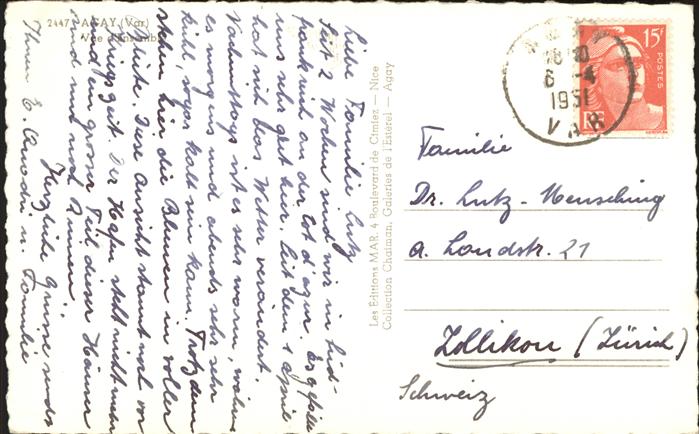 2447 - AGAY (Var)
Vue d'ensemble
Liebe Familie Lutz
Seit 2 Wochen sind wir in Süd-
frankreich an der Côt d'azur. Es gefällt
uns sehr gut hier. Seit dem 1 April
hat sich das Wetter verändert.
Vormittags ist es sehr warm, während
es morgens und abends sehr sehr
kühl, sogar kalt sein kann. Trotzdem
stehen hier die Blumen in voller
Blüte. Diese Ansicht stammt noch vor
Kriegszeit. Der Hafen steht nicht mehr
und ein grosser Teil dieser Häuser
sind nur noch Ruinen.
Herzliche Grüsse
Ihnen E. u. Familie
Les Editions MAR, 4 Boulevard de Cimiez — Nice
Collection Chatman, Galeries de l'Esterel — Agay
15F
POSTES
RF
6 -4
1951
VAR
Familie
Dr. Lutz - Mensching
a. Landstr. 21
Zollikon (Zürich)
Schweiz